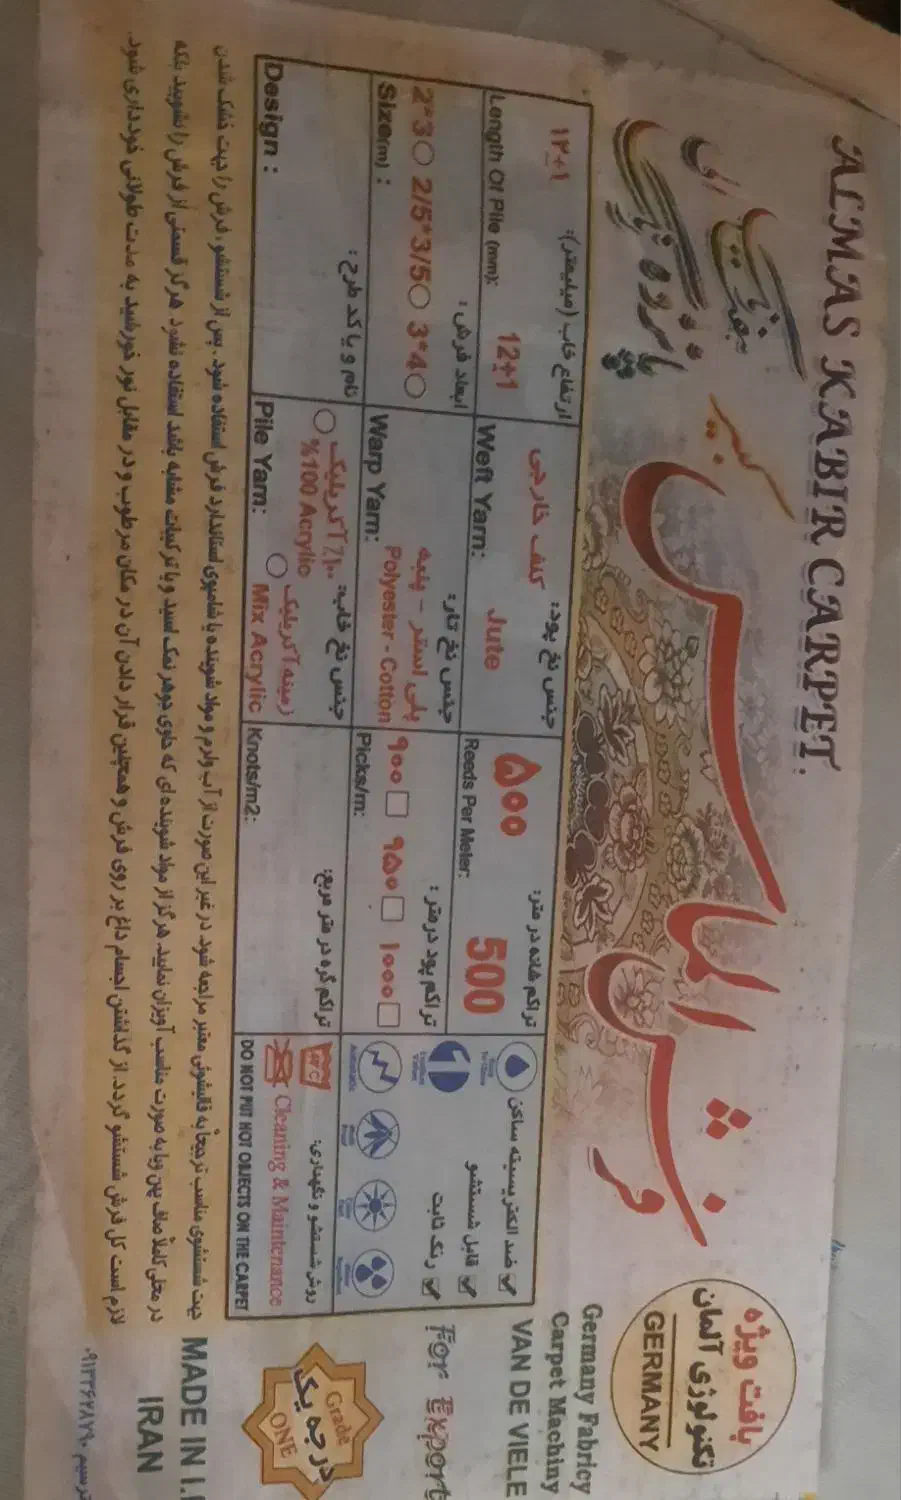 ALMAS KABIR CARPET.
فرش الماس
کبیر
بافت ویژه
تکنولوژی آلمان
GERMANY
Germany Fabricy
Carpet Machiny
VAN DE VIELE
For Export
Grade
درجه یک
ONE
MADE IN I.
IRAN
ارتفاع خاب (میلیمتر):
۱۲±۱
12±1
Length Of Pile (mm):
جنس نخ پود:
کنف خارجی
Jute
Weft Yarn:
تراکم شانه در متر:
۵۰۰
500
Reeds Per Meter:
ابعاد فرش :
2*3 2/5*3/5 3*4
Size(m) :
جنس نخ تار:
پلی استر - پنبه
Polyester - Cotton
Warp Yarn:
تراکم پود در متر :
۹۰۰ ۹۵۰ ۱۰۰۰
Picks/m:
نام و یا کد طرح :
Design :
جنس نخ خاب:
۱۰۰٪ آکریلیک
%100 Acrylic
زمینه آکریلیک
Mix Acrylic
Pile Yarn:
تراکم گره در متر مربع:
Knots/m2:
ضد الکتریسیته ساکن
قابل شستشو
رنگ ثابت
روش شستشو و نگهداری:
Cleaning & Maintenance
DO NOT PUT HOT OBJECTS ON THE CARPET
جهت شستشوی مناسب ترجیحاً به قالیشوئی معتبر مراجعه شود در غیر این صورت از آب ولرم و مواد شوینده یا شامپوی استاندارد فرش استفاده شود . پس از شستشو، فرش را جهت خشک شدن
در محلی کاملاً صاف پهن و یا به صورت مناسب آویزان نمایید. هرگز از مواد شوینده ای که حاوی جوهر نمک، اسید و یا ترکیبات مشابه باشد استفاده نشود. هرگز قسمتی از فرش را نشویید بلکه
لازم است کل فرش شستشو گردد. از گذاشتن اجسام داغ بر روی فرش و همچنین قرار دادن آن در مکان مرطوب و در مقابل نور خورشید به مدت طولانی خودداری شود.
ترسیم